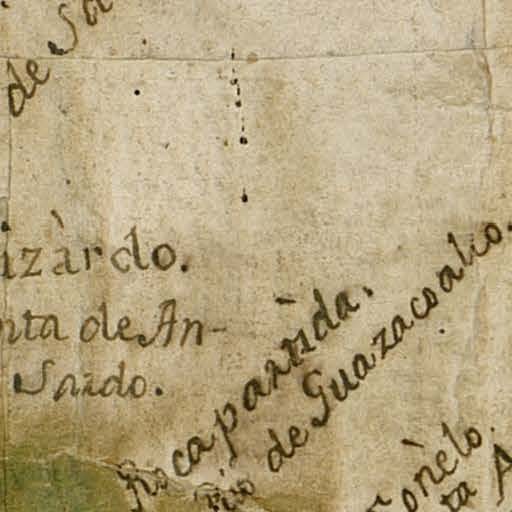 de Sa
izàrdo.
nta de An-
Sardo.
Roca partìda.
Rio de Guazacoalco.
Tonèlo.
ta A